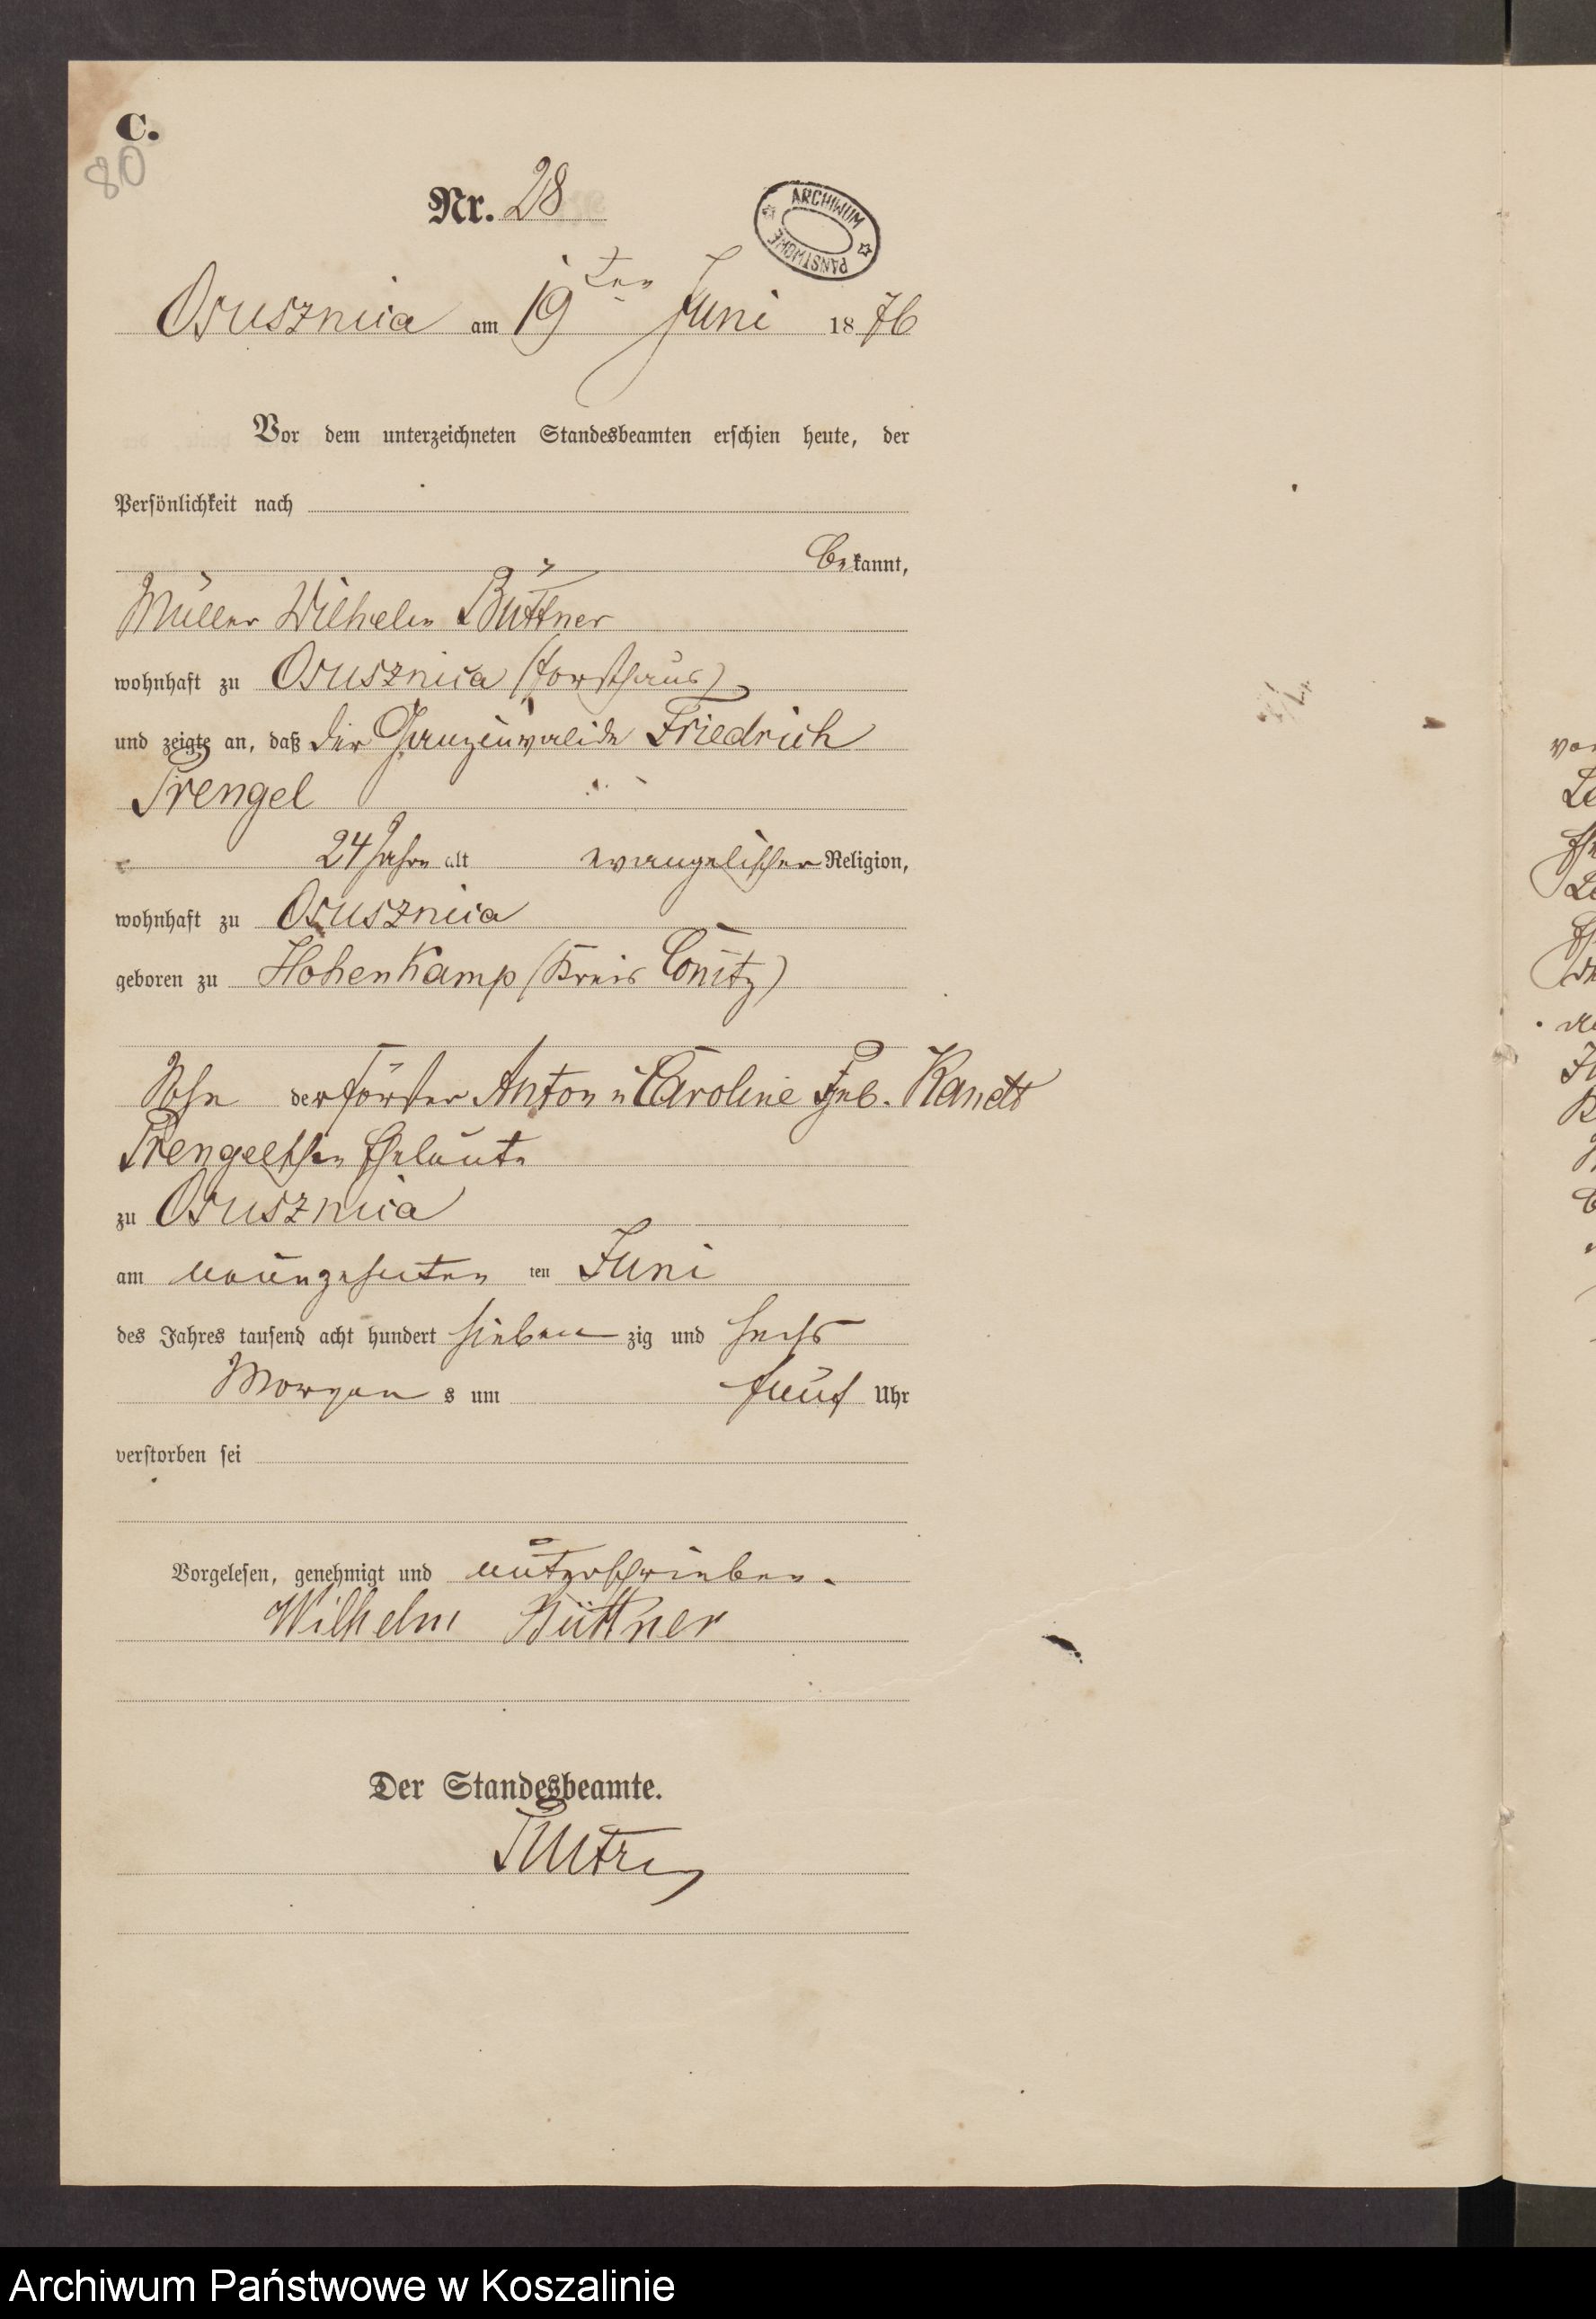 C.
80
Nr. 28
ARCHIWUM PAŃSTWOWE
Osusznica am 19ten Juni 1876
Vor dem unterzeichneten Standesbeamten erschien heute, der
Persönlichkeit nach
bekannt,
Müller Wilhelm Büttner
wohnhaft zu Osusznica (Forsthaus)
und zeigte an, daß der Ganzinvalide Friedrich
Prengel
24 Jahre alt evangelischer Religion,
wohnhaft zu Osusznica
geboren zu Hohenkamp (Kreis Conitz)
Sohn der Förster Anton u Caroline geb. Kandt
Prengelschen Eheleute
zu Osusznica
am neunzehnten ten Juni
des Jahres tausend acht hundert sieben zig und sechs
Morgen s um fünf Uhr
verstorben sei
Vorgelesen, genehmigt und unterschrieben.
Wilhelm Büttner
Der Standesbeamte.
Archiwum Państwowe w Koszalinie